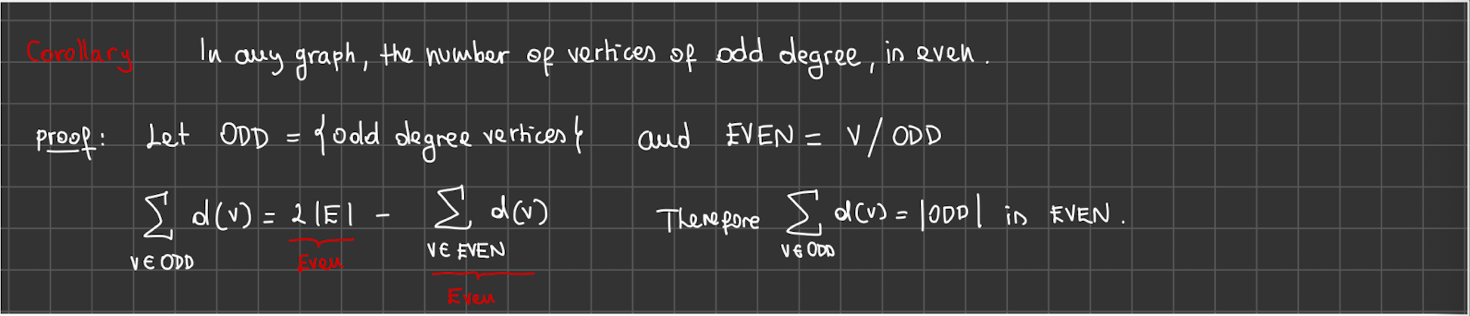 Corollary In any graph, the number of vertices of odd degree, is even.
proof: Let ODD = {odd degree vertices} and EVEN = V / ODD
∑ d(v) = 2|E| - ∑ d(v) Therefore ∑ d(v) = |ODD| is EVEN.
v∈ODD Even v∈EVEN v∈ODD
Even